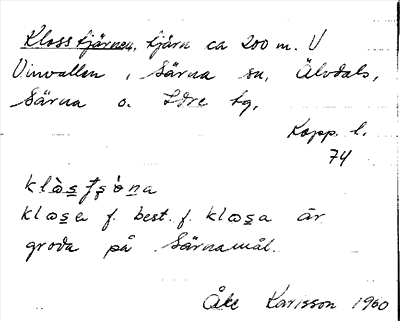 Klosstjärnen, tjärn ca 200 m. V
Vinvallen, Särna sn, Älvdals,
Särna o. Idre tg,
Kopp. l.
74
klɷ̀s̲tʃǝ́n̲a
klɷs̲a f. best. f. klɷs̲a är
groda på Särnamål.
Åke Karlsson 1960